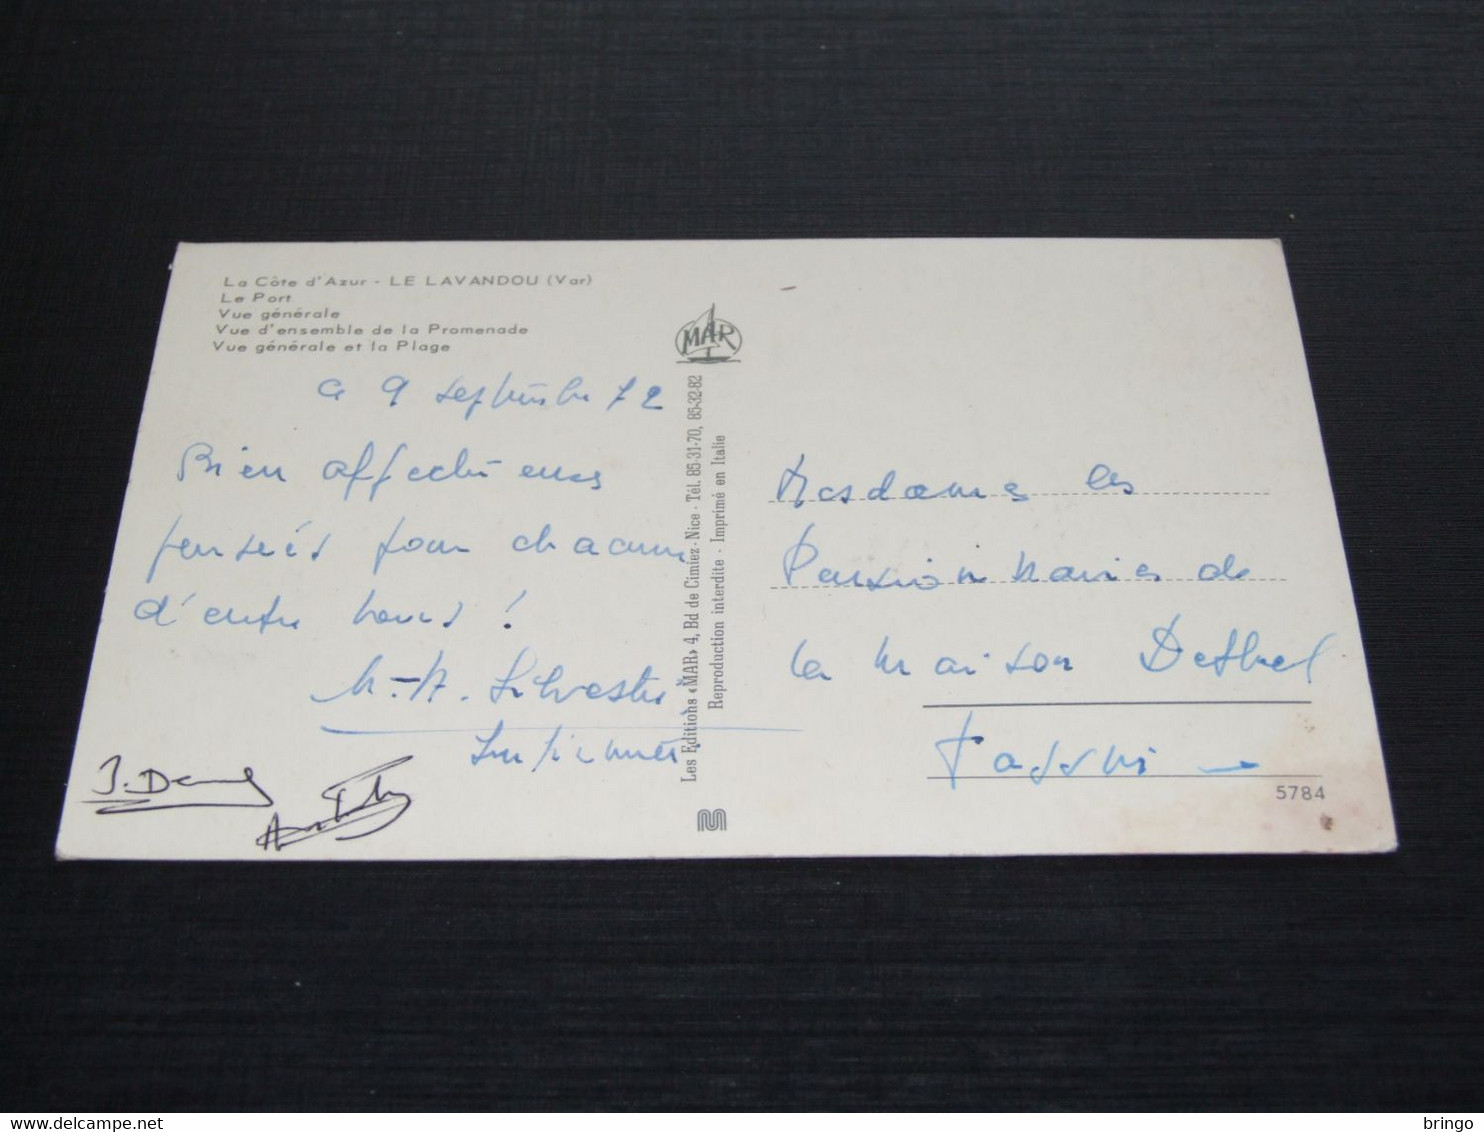 La Côte d'Azur - LE LAVANDOU (Var)
Le Port
Vue générale
Vue d'ensemble de la Promenade
Vue générale et la Plage
MAR
ce 9 septembre 72
Bien affectueuses
pensées pour chacune
d'entre vous !
M-A. Silvestre
Infirmière
J. D
Les Editions «MAR» 4, Bd de Cimiez - Nice - Tél. 85-31-70, 85-32-82
Reproduction interdite - Imprimé en Italie
Mesdames les
Pensionnaires de
la maison
5784
Delcampe.net
bringo